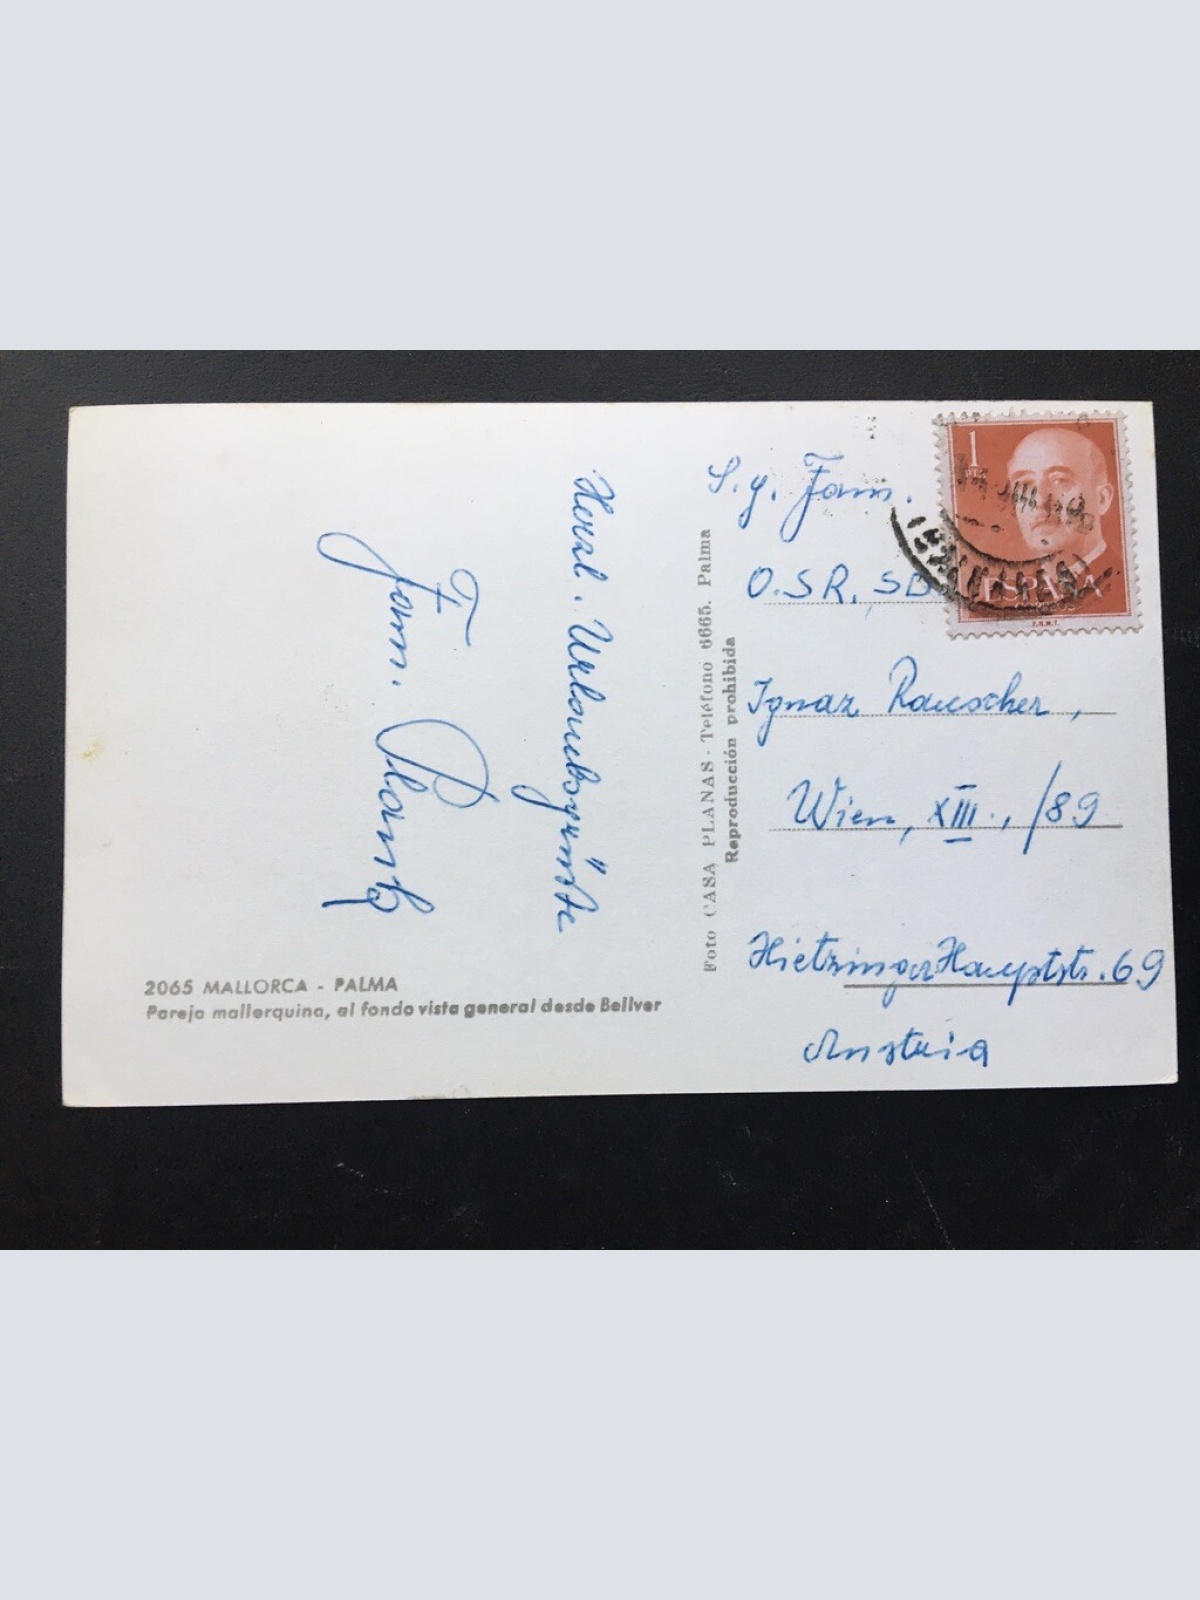 Herzl. Urlaubsgrüße
F
Fam. Plank
2065 MALLORCA - PALMA
Pareja mallorquina, al fondo vista general desde Bellver
Foto CASA PLANAS - Teléfono 6665. Palma
Reproducción prohibida
1
PTA
ESPAÑA
F.N.M.T.
S. g. Fam.
O.S.R., SB
Ignaz Rauscher,
Wien, XIII., /89
Hietzinger Hauptstr. 69
Austria